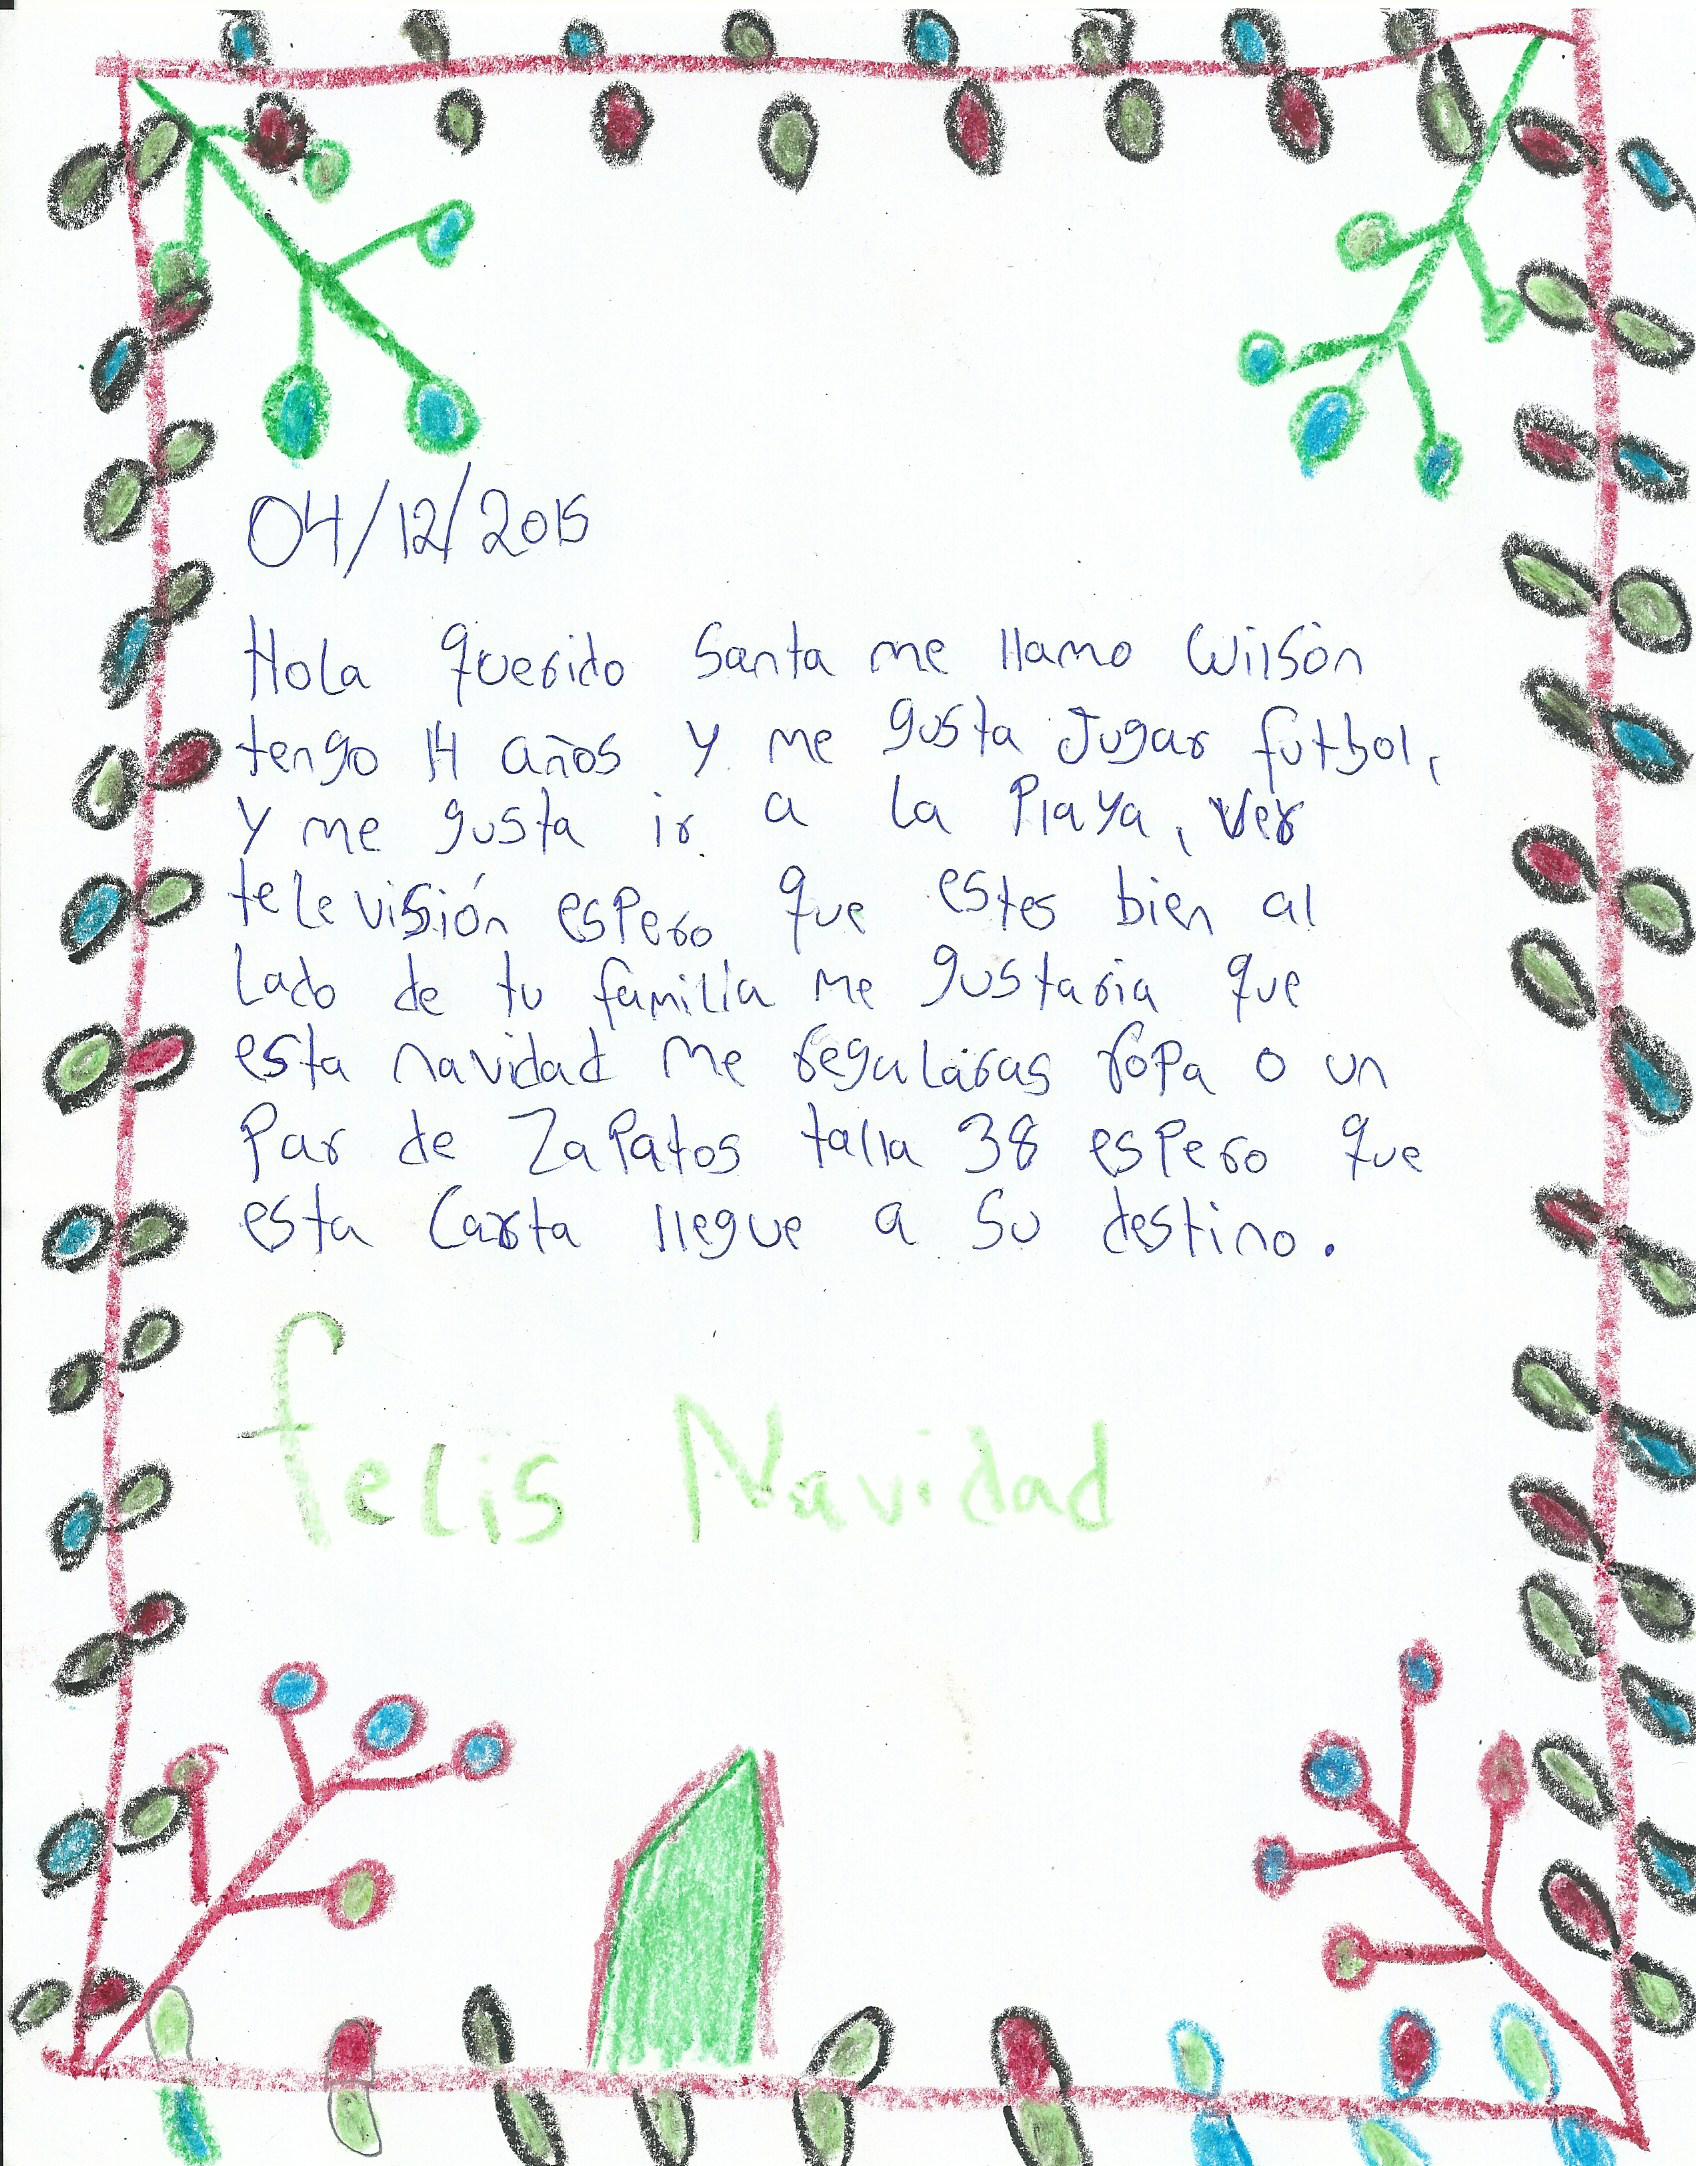 04/12/2015
Hola querido Santa me llamo Wilson
tengo 14 años y me gusta Jugar futbol,
y me gusta ir a la Playa, ver
televisión espero que estes bien al
lado de tu familia me gustaria que
esta navidad me regalaras ropa o un
Par de Zapatos talla 38 espero que
esta Carta llegue a su destino.
felis Navidad